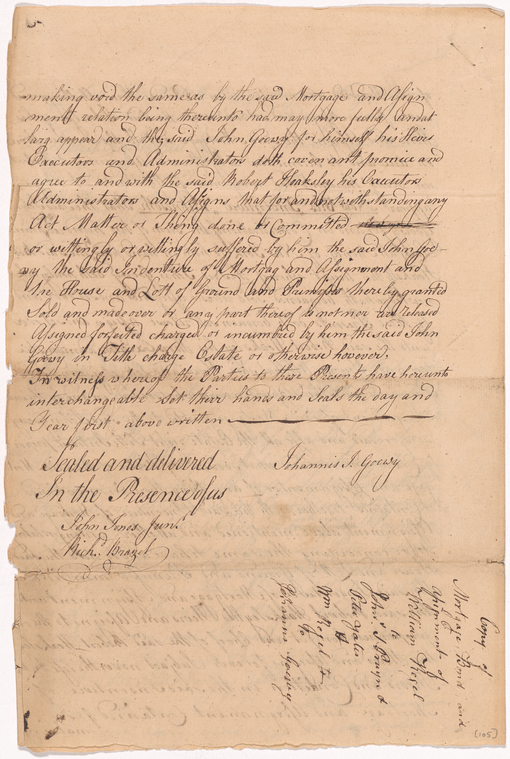 making void the same as by the said Mortgage and Asign
ment relation being thereunto had may more fully & at
larg appear and the said John Goewy for himself his Heirs
Executors and Administrators doth covenant promice and
agree to and with the said Robert Hoaksley his Executors
Administrators and Assigns that for and notwithstanding any
Act Matter or Thing done or Committed
or wittingly or willingly suffered by him the said John Goe-
wy the said Indenture of Mortgag and Asignment and
the House and Lott of Ground and Premises thereby granted
Sold and made over or any part thereof is not nor released
Assigned forfeited charged or incumbred by him the said John
Goewy in Title charge Estate or otherwise howover,
In witness whereof the Parties to these Presents have hereunto
interchangeable Set their hands and Seals the day and
Year first above written
Sealed and delivered
In the Presence of us
Johannis J. Goewy
John Jones Junr.
Richd. Brazel
Copy of
Mortgage, Bond and
Asignment of
William Hogel
to
John S Pruyn &
Peter Yates
&
Wm Hogel to
Johannis Goewy
[105]